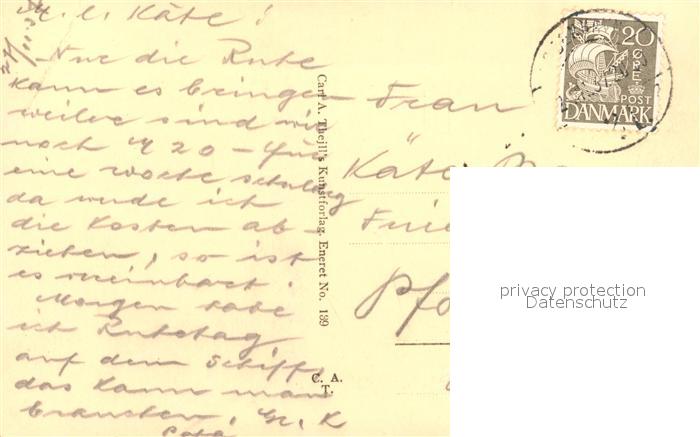 M. l. Käte!
Nur die Ruhe
kann es bringen
weilve sind wir
noch M 20 - für
eine Woche schuldig
da wurde ich
die Kosten ab-
ziehen, so ist
es vereinbart.
Morgen habe
ich Ruhetag
auf dem Schiff,
das kann man
brauchen. Gr. K
Papa
Carl A. Thejll's Kunstforlag. Eneret No. 139
C. A.
T.
20
ØRE
POST
DANMARK
Frau
Käte
privacy protection
Datenschutz